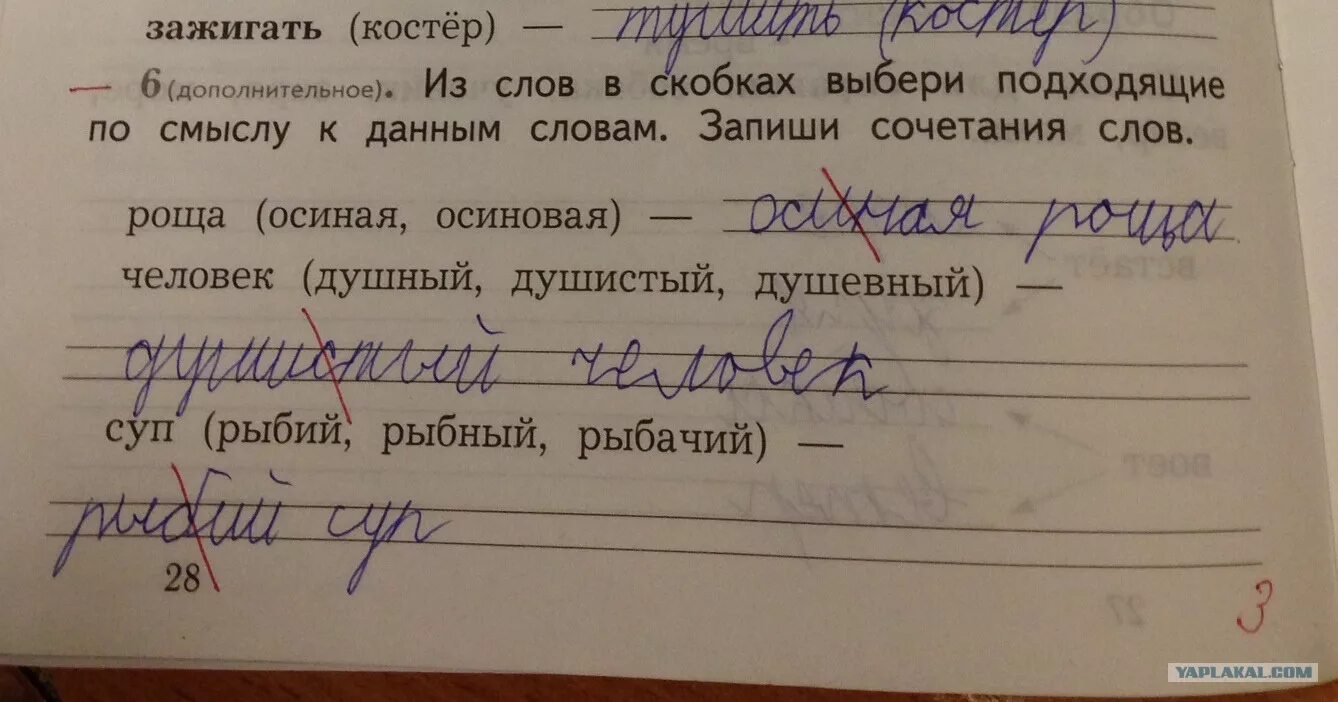 зажигать (костёр) — тушить (костёр)
6 (дополнительное). Из слов в скобках выбери подходящие
по смыслу к данным словам. Запиши сочетания слов.
роща (осиная, осиновая) — осиная роща
человек (душный, душистый, душевный) —
душистый человек
суп (рыбий, рыбный, рыбачий) —
рыбий суп
28
3
YAPLAKAL.COM